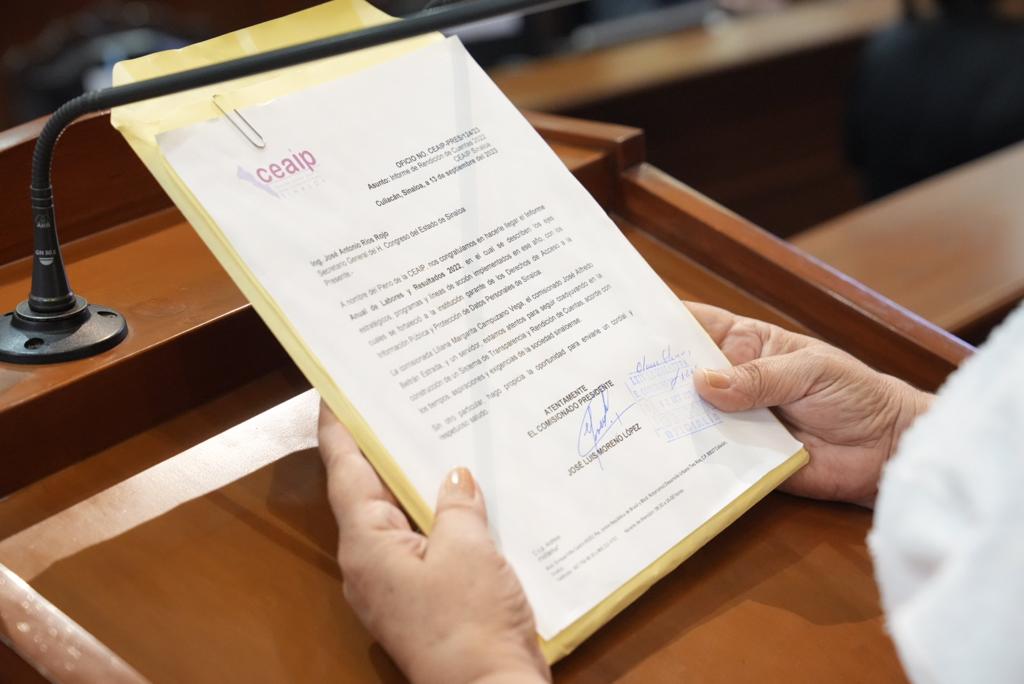 ceaip
SINALOA
OFICIO NO. CEAIP-PRES/124/23
Asunto: Informe de Rendición de Cuentas 2022
CEAIP Sinaloa
Culiacán, Sinaloa, a 13 de septiembre del 2023
Ing. José Antonio Ríos Rojo
Secretario General del H. Congreso del Estado de Sinaloa
Presente.-
A nombre del Pleno de la CEAIP, nos congratulamos en hacerle llegar el Informe
Anual de Labores y Resultados 2022, en el cual se describen los ejes
estratégicos, programas y líneas de acción implementados en ese año, con los
cuales se fortaleció a la institución garante de los Derechos de Acceso a la
Información Pública y Protección de Datos Personales de Sinaloa.
La comisionada Liliana Margarita Campuzano Vega, el comisionado José Alfredo
Beltrán Estrada, y un servidor, estamos atentos para seguir coadyuvando en la
construcción de un Sistema de Transparencia y Rendición de Cuentas, acorde con
los tiempos, aspiraciones y exigencias de la sociedad sinaloense.
Sin otro particular, hago propicia la oportunidad para enviarle un cordial y
respetuoso saludo.
ATENTAMENTE
EL COMISIONADO PRESIDENTE
JOSÉ LUIS MORENO LÓPEZ